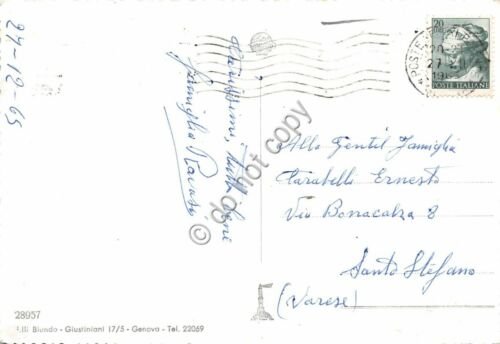 27-12-65
Carissimi, tutto bene
famiglia Ravasi
20
POSTE ITALIANE
Alla Gentil Famiglia
Carabelli Ernesto
Via Bonacalza 8
Santo Stefano
(Varese)
do not copy
28957
F.lli Biondo - Giustiniani 17/5 - Genova - Tel. 22069